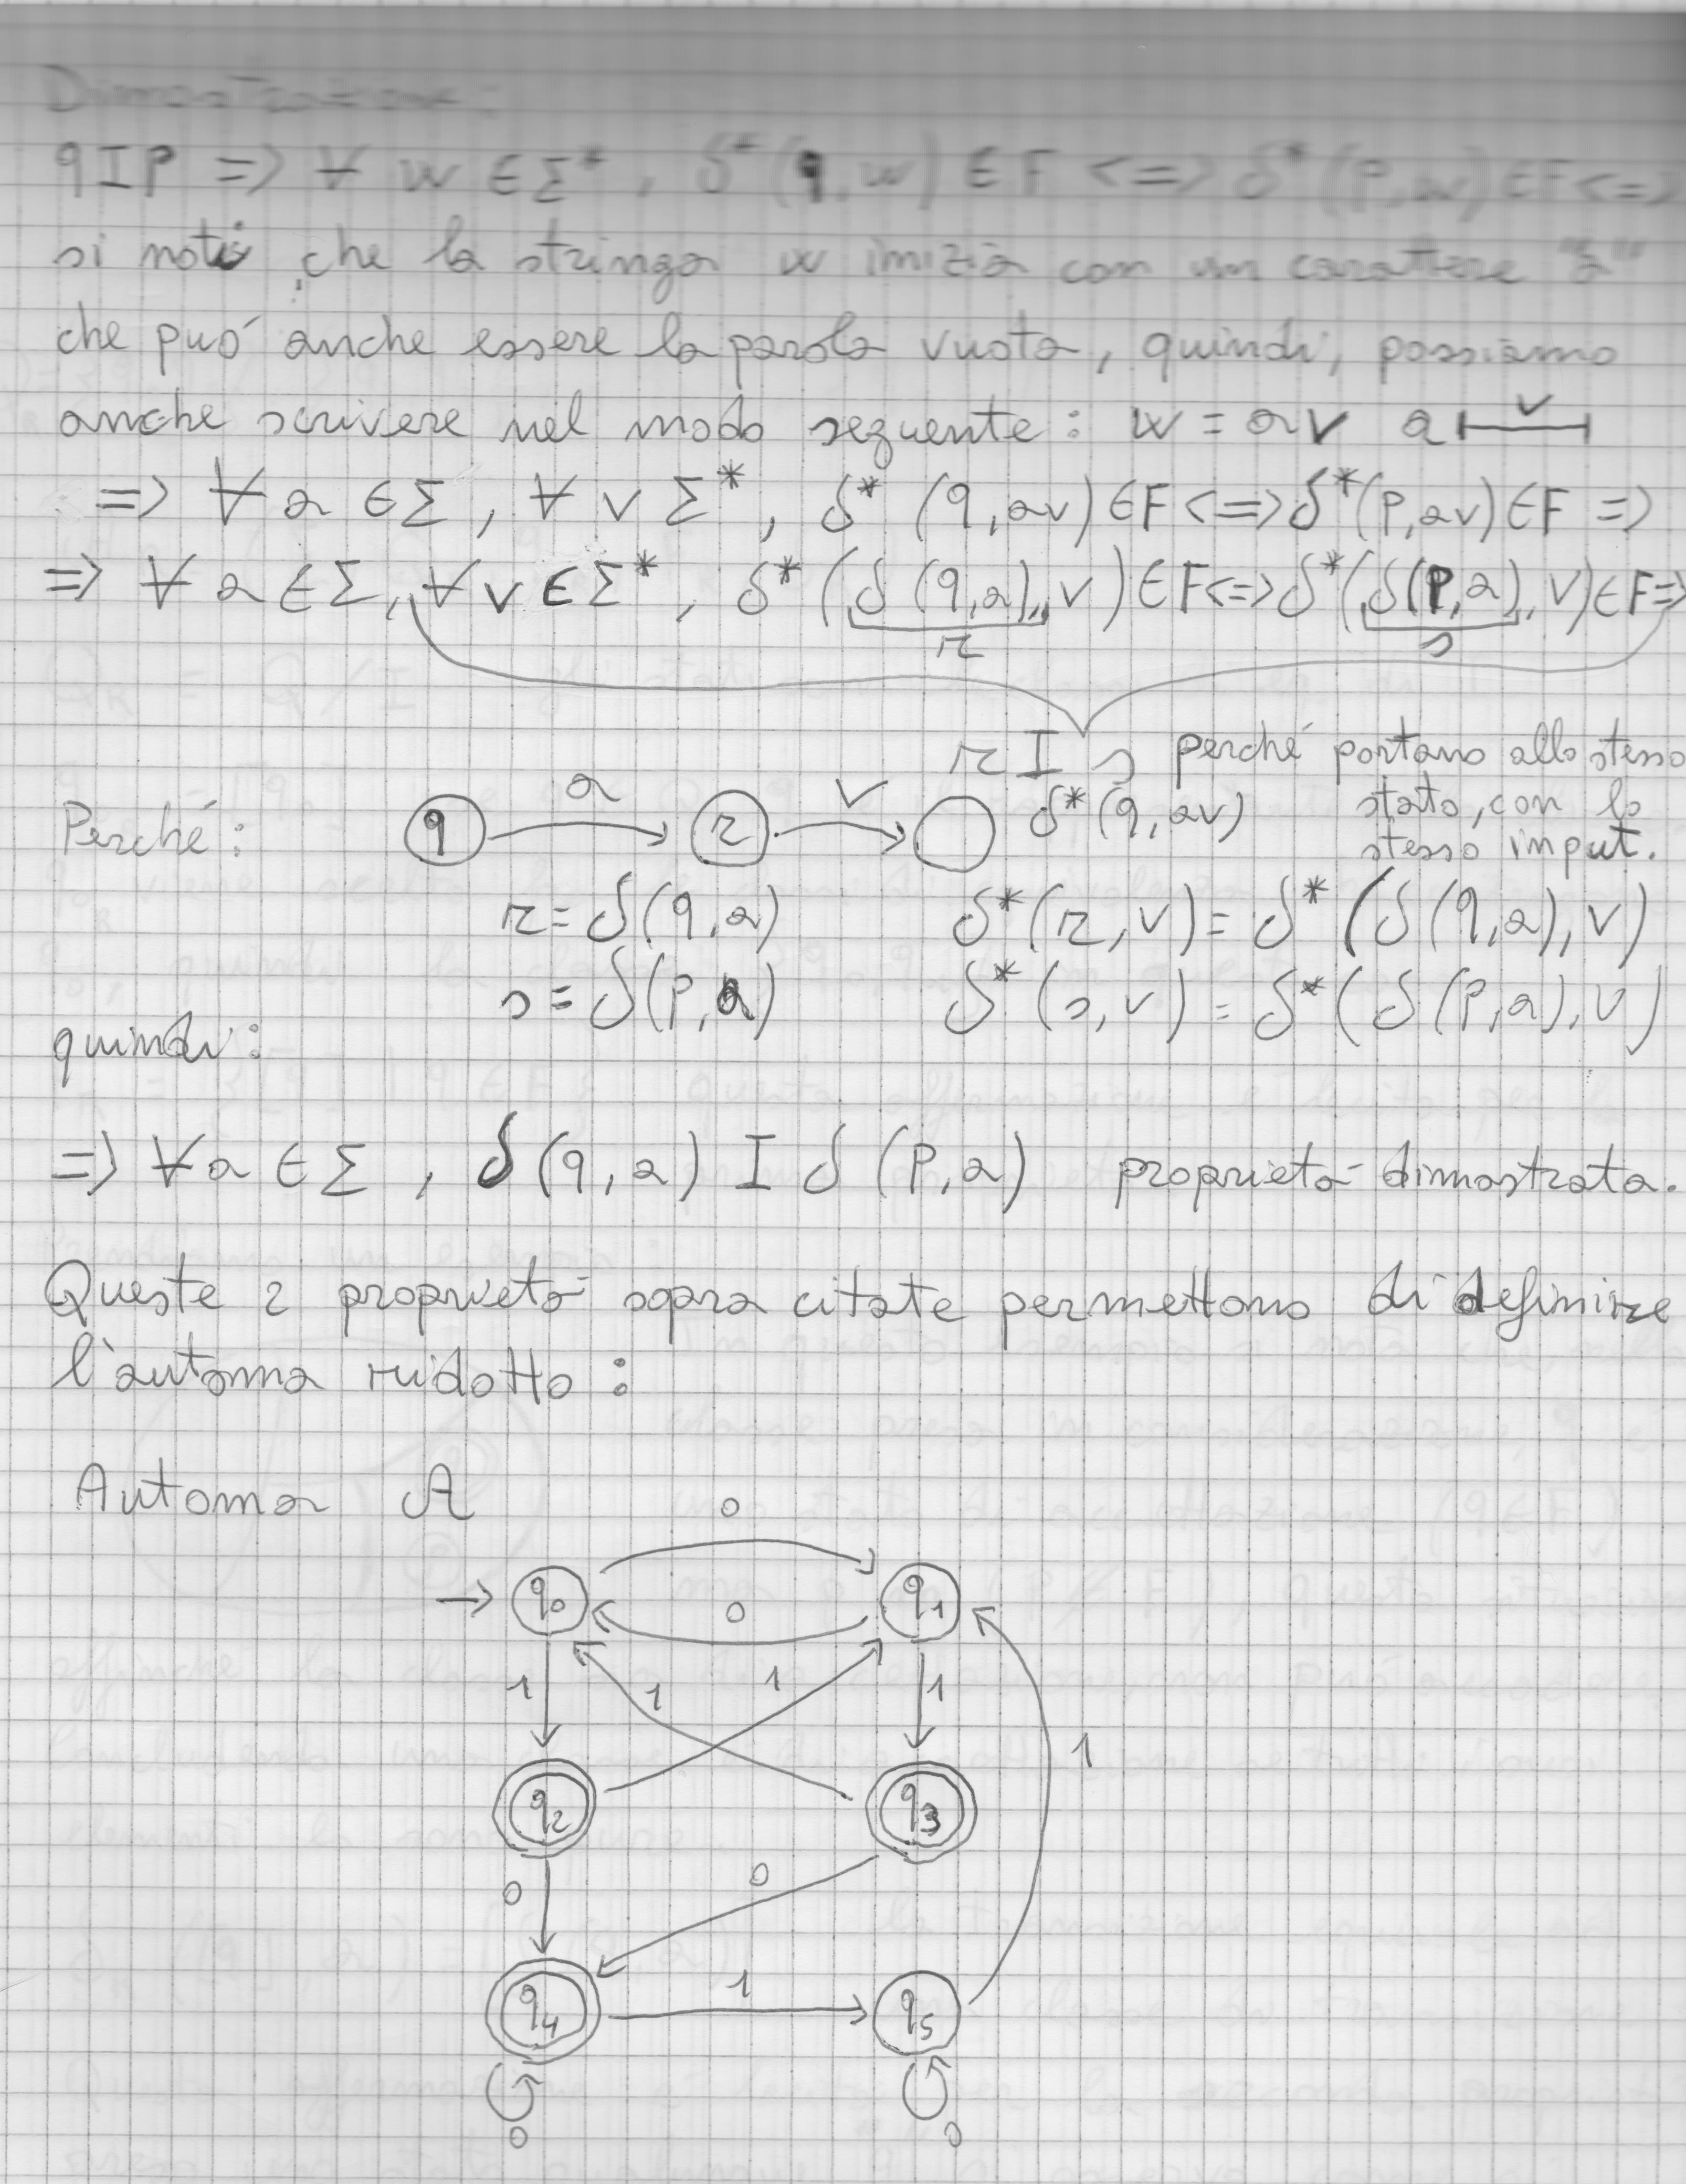 Dimostrazione:
qIP => ∀ w ∈ Σ*, δ*(q,w) ∈ F <=> δ*(P,w) ∈ F <=>
si noti che la stringa w inizia con un carattere "a"
che può anche essere la parola vuota, quindi, possiamo
anche scrivere nel modo seguente: w = av a v
=> ∀ a ∈ Σ, ∀ v Σ*, δ* (q,av) ∈ F <=> δ*(P,av) ∈ F =>
=> ∀ a ∈ Σ, ∀ v ∈ Σ*, δ* (δ (q,a), v) ∈ F <=> δ*(δ(P,a), v) ∈ F =>
r s
r I s perché portano allo stesso
stato, con lo
stesso input.
Perché: q a r v δ*(q,av)
r = δ(q,a) δ*(r,v) = δ* (δ(q,a),v)
s = δ(P,a) δ* (s,v) = δ* (δ(P,a),v)
quindi:
=> ∀ a ∈ Σ, δ(q,a) I δ (P,a) proprietà dimostrata.
Queste 2 proprietà sopra citate permettono di definire
l'automa ridotto:
Automa A
0
q0 0 q1
1 1 1 1
q2 q3
1
0 0
q4 1 q5
0 0